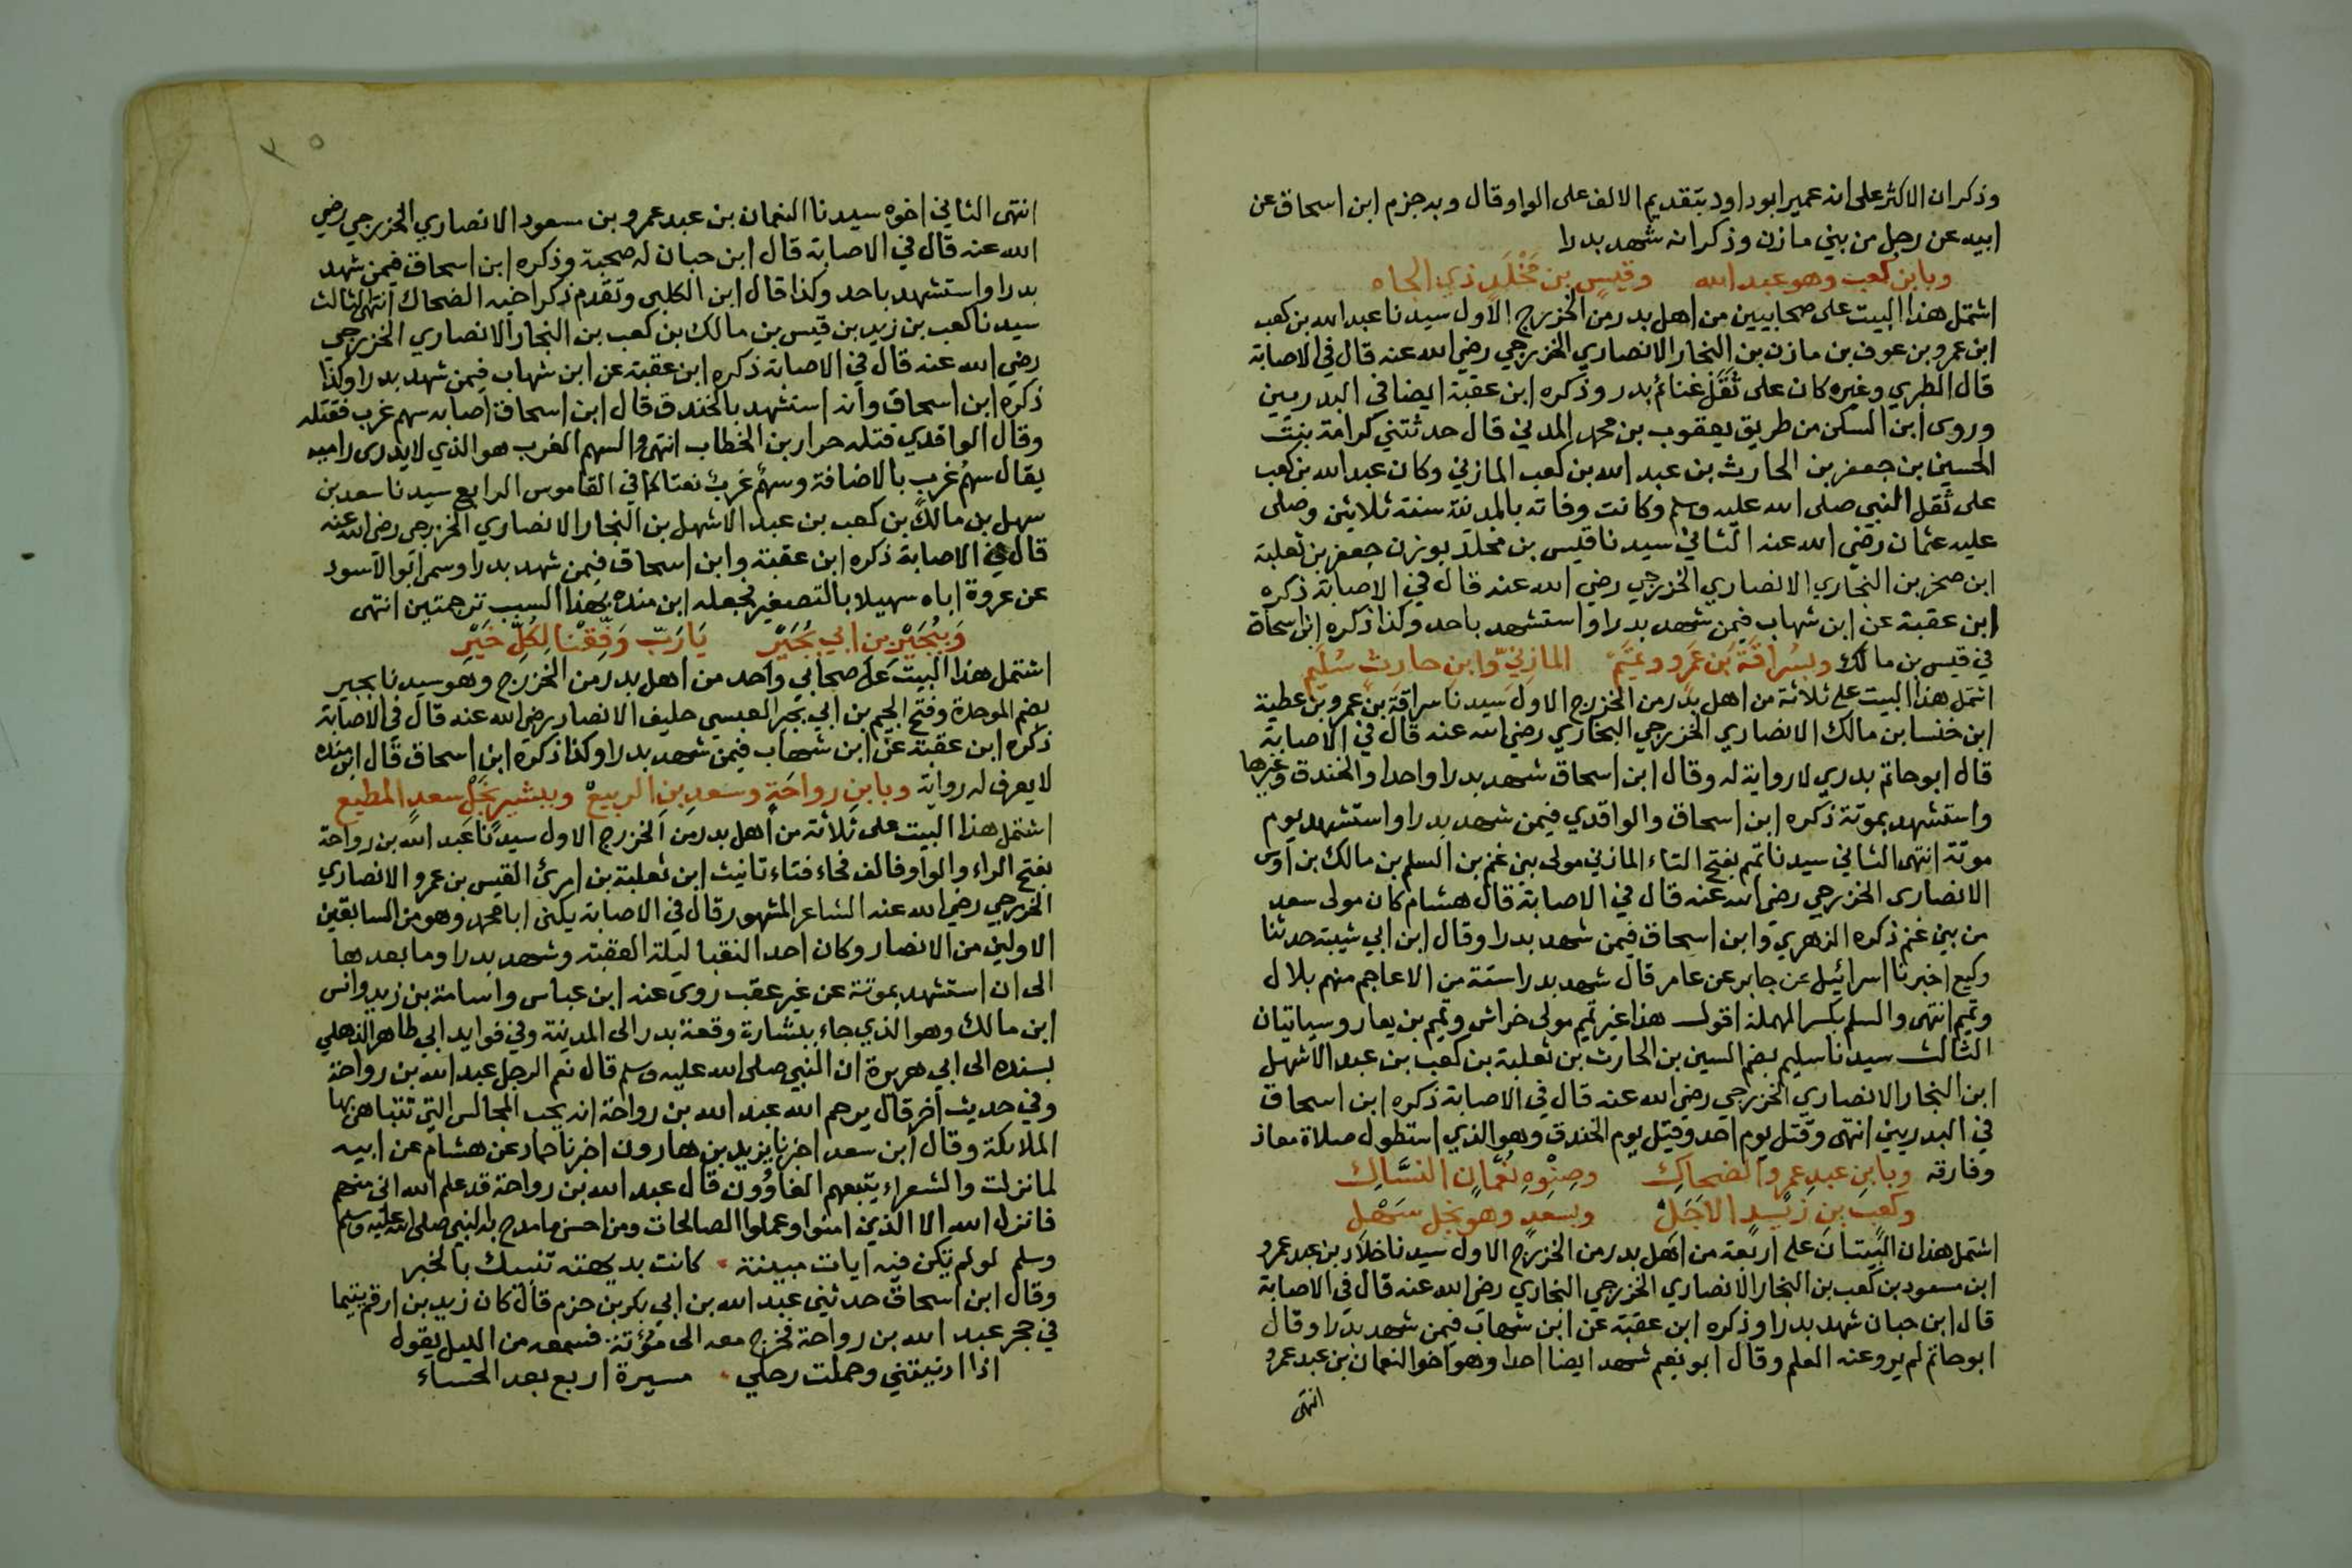 وذكر ان الاكثر على انه عمير ابو داود بتقديم الالف على الواو وقال وبه جزم ابن اسحاق عن
ابيه عن رجل من بني مازن وذكر انه شهد بدرا
وبابن كعب وهو عبد الله وقيس بن مَخْلَدٍ ذي الجاه
اشتمل هذا البيت على صحابيين من اهل بدر من الخزرج الاول سيدنا عبد الله بن كعب
ابن عمرو بن عوف بن مازن بن النجار الانصاري الخزرجي رضي الله عنه قال في الاصابة
قال الطبري وغيره كان على ثَقَل غنائم بدر وذكره ابن عقبة ايضا في البدريين
وروى ابن السكن من طريق يعقوب بن محمد المدني قال حدثتني كرامة بنت
الحسين بن جعفر بن الحارث بن عبد الله بن كعب المازني وكان عبد الله بن كعب
على ثقل النبي صلى الله عليه وسلم وكانت وفاته بالمدينة سنة ثلاثين وصلى
عليه عثمان رضي الله عنه الثاني سيدنا قيس بن مخلد بوزن جعفر بن ثعلبة
ابن صخر بن النجاري الانصاري الخزرجي رضي الله عنه قال في الاصابة ذكره
ابن عقبة عن ابن شهاب فيمن شهد بدرا واستشهد باحد وكذا ذكره ابن اسحاق
في قيس بن مالك وبسُراقَةَ بَن عَمرٍو وتميَّم المازِنيّ وابنِ حارثٍ سُلَيم
اشتمل هذا البيت على ثلاثة من اهل بدر من الخزرج الاول سيدنا سراقة بن عمرو بن عطية
ابن خنسا بن مالك الانصاري الخزرجي البخاري رضي الله عنه قال في الاصابة
قال ابو حاتم بدري لا رواية له وقال ابن اسحاق شهد بدرا واحدا والخندق وغيرها
واستشهد بموتة ذكره ابن اسحاق والواقدي فيمن شهد بدرا واستشهد يوم
موتة انتهى الثاني سيدنا تميم بفتح التاء المازني مولى بني غنم بن السلم بن مالك بن اوس
الانصاري الخزرجي رضي الله عنه قال في الاصابة قال هشام كان مولى سعد
من بني غنم ذكره الزهري وابن اسحاق فيمن شهد بدرا وقال ابن ابي شيبة حدثنا
وكيع اخبرنا اسرائيل عن جابر عن عامر قال شهد بدرا ستة من الاعاجم منهم بلال
وتميم انتهى والسلم بكسر المهملة اقول هذا غير تميم مولى خراش وتميم بن يعار وسياتيان
الثالث سيدنا سليم بضم السين بن الحارث بن ثعلبة بن كعب بن عبد الاشهل
ابن النجار الانصاري الخزرجي رضي الله عنه قال في الاصابة ذكره ابن اسحاق
في البدريين انتهى وقتل يوم احد وقيل يوم الخندق وهو الذي استطول صلاة معاذ
وفارقه وبابنِ عبدِ عمرٍو الضحاكِ وصِنْوِهِ نُعْمَانٍ النسَّاكِ
وكعبِ بنِ زيدٍ الاَجَلْ وبسعدٍ وهو نجل سَهْل
اشتمل هذان البيتان على اربعة من اهل بدر من الخزرج الاول سيدنا خلاد بن عبد عمرو
ابن مسعود بن كعب بن النجار الانصاري الخزرجي النجاري رضي الله عنه قال في الاصابة
قال ابن حبان شهد بدرا وذكره ابن عقبة عن ابن شهاب فيمن شهد بدرا وقال
ابو حاتم لم يرو عنه العلم وقال ابو نعيم شهد ايضا احدا وهو اخو النعمان بن عبد عمرو
انتهى
٣٥
انتهى الثاني اخوه سيدنا النعمان بن عبد عمرو بن مسعود الانصاري الخزرجي رضي
الله عنه قال في الاصابة قال ابن حبان له صحبة وذكره ابن اسحاق فيمن شهد
بدرا واستشهد باحد وكذا قال ابن الكلبي وتقدم ذكر اخيه الضحاك انتهى الثالث
سيدنا كعب بن زيد بن قيس بن مالك بن كعب بن النجار الانصاري الخزرجي
رضي الله عنه قال في الاصابة ذكره ابن عقبة عن ابن شهاب فيمن شهد بدرا وكذا
ذكره ابن اسحاق وانه استشهد بالخندق قال ابن اسحاق اصابه سهم غرب فقتله
وقال الواقدي قتله ضرار بن الخطاب انتهى والسهم الغرب هو الذي لا يدرى راميه
يقال سهمُ غربٍ بالاضافة وسهمٌ غربٌ نعتا كما في القاموس الرابع سيدنا سعد بن
سهل بن مالك بن كعب بن عبد الاشهل بن النجار الانصاري الخزرجي رضي الله عنه
قال في الاصابة ذكره ابن عقبة وابن اسحاق فيمن شهد بدرا وسمى ابو الاسود
عن عروة اباه سهيلا بالتصغير فجعله ابن منده بهذا السبب ترجمتين انتهى
وَبِبُجَيْرِ بن ابي بُجَيْر يَا رَبّ وَفِّقْنَا لِكُلِّ خَيْرِ
اشتمل هذا البيت على صحابي واحد من اهل بدر من الخزرج وهو سيدنا بجير
بضم الموحدة وفتح الجيم بن ابي بجير العبسي حليف الانصار رضي الله عنه قال في الاصابة
ذكره ابن عقبة عن ابن شهاب فيمن شهد بدرا وكذا ذكره ابن اسحاق قال ابن منده
لا يعرف له رواية وبابنِ رواحَةٍ وسَعدِ بنِ الربيعْ وببشيرٍ نَجْلِ سعدٍ المطيع
اشتمل هذا البيت على ثلاثة من اهل بدر من الخزرج الاول سيدنا عبد الله بن رواحة
بفتح الراء والواو فالف فحاء فتاء تانيث ابن ثعلبة بن امرئ القيس بن عمرو الانصاري
الخزرجي رضي الله عنه الشاعر المشهور قال في الاصابة يكنى ابا محمد وهو من السابقين
الاولين من الانصار وكان احد النقبا ليلة العقبة وشهد بدرا وما بعدها
الى ان استشهد بموتة عن غير عقب روى عنه ابن عباس واسامة بن زيد وانس
ابن مالك وهو الذي جاء ببشارة وقعة بدر الى المدينة وفي فوايد ابي طاهر الذهلي
بسنده الى ابي هريرة ان النبي صلى الله عليه وسلم قال نعم الرجل عبد الله بن رواحة
وفي حديث آخر قال يرحم الله عبد الله بن رواحة انه يحب المجالس التي تتباهى بها
الملائكة وقال ابن سعد اخبرنا يزيد بن هارون اخبرنا حماد عن هشام عن ابيه
لما نزلت والشعراء يتبعهم الغاوُون قال عبد الله بن رواحة قد علم الله اني منهم
فانزل الله الا الذين امنوا وعملوا الصالحات ومن احسن ما مدح به النبي صلى الله عليه وسلم
وسلم لو لم تكن فيه ايات مبينة كانت بديهته تنبيك بالخبر
وقال ابن اسحاق حدثني عبد الله بن ابي بكر بن حزم قال كان زيد بن ارقم يتيما
في حجر عبد الله بن رواحة فخرج معه الى مؤتة فسمعه من الليل يقول
اذا ادنيتني وحملت رحلي مسيرة اربع بعد الحساء